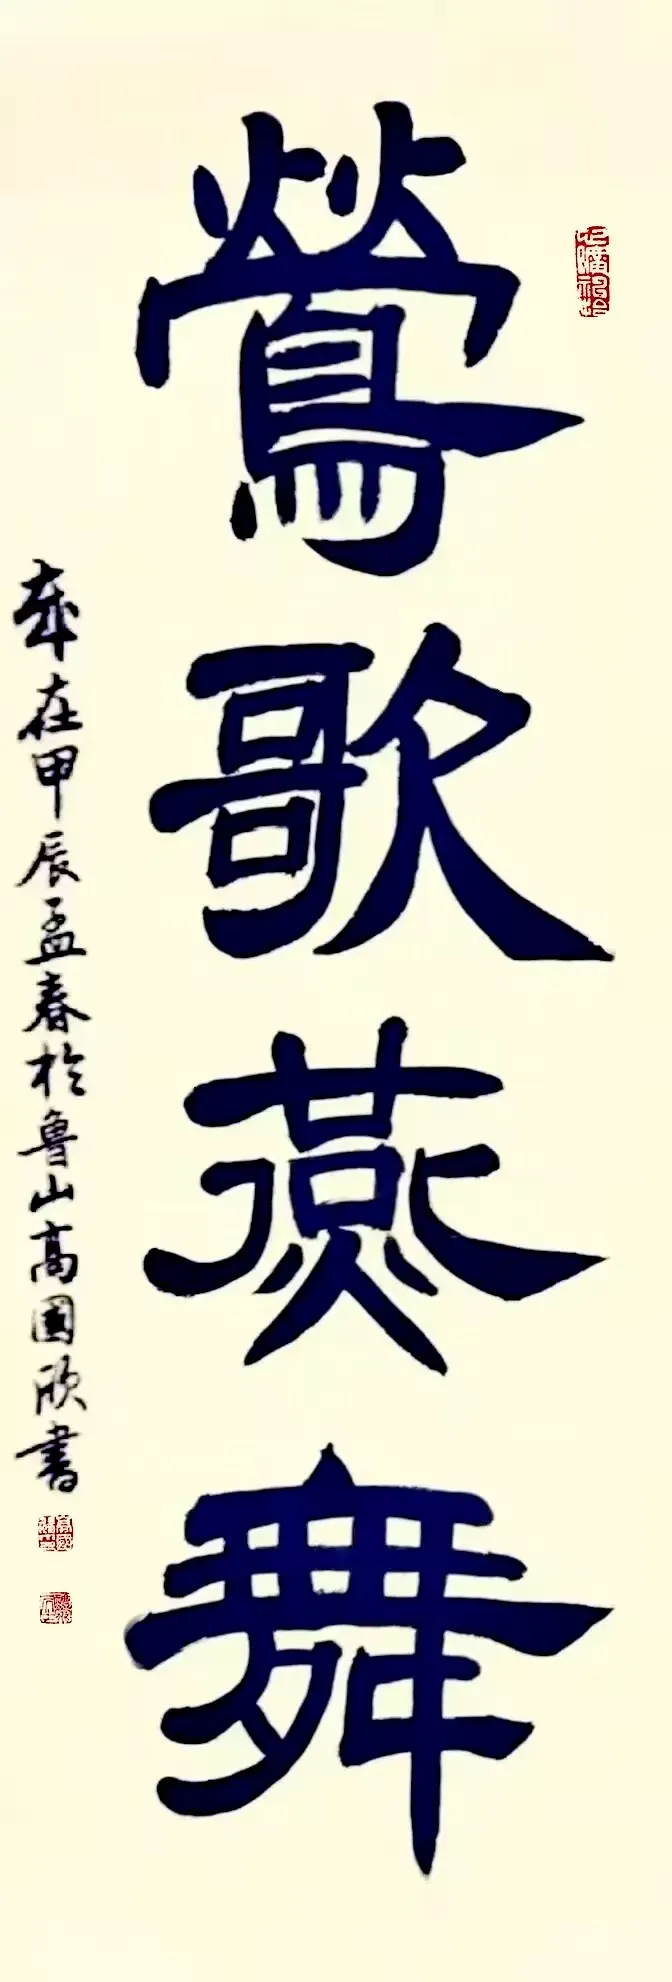 鶯歌燕舞
歲在甲辰孟春於魯山高國欣書